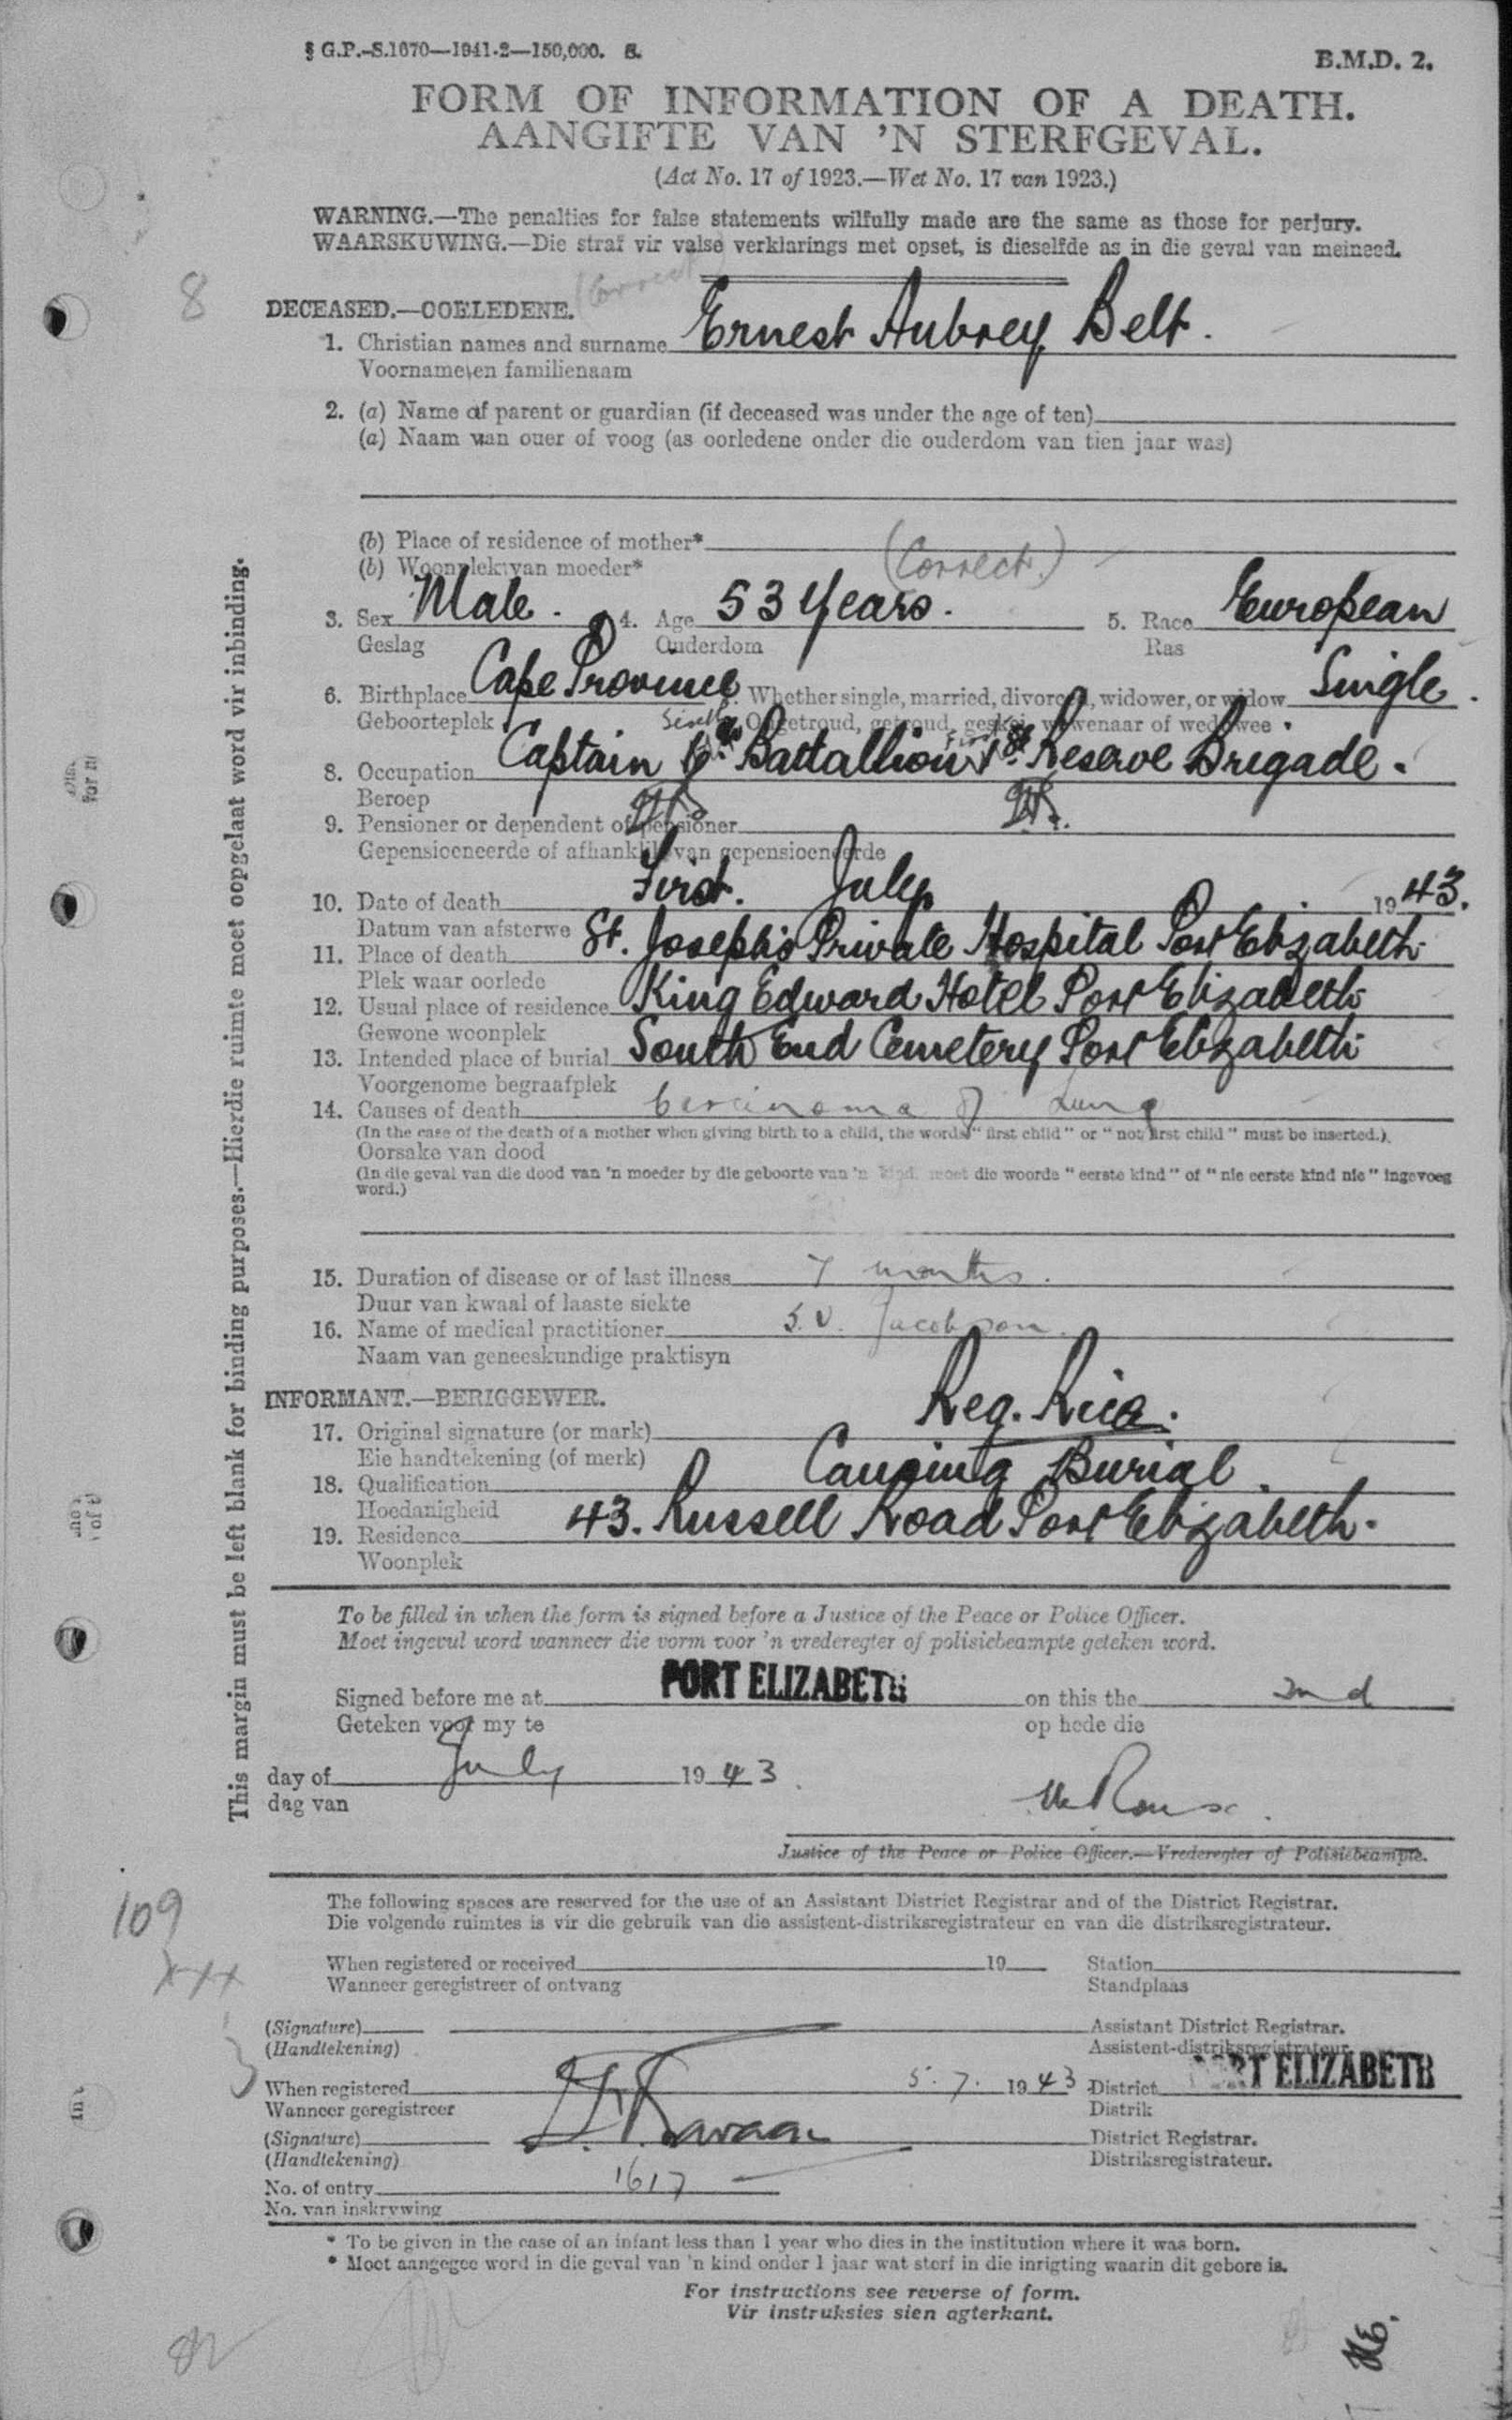 § G.P.-S.1670—1941-2—150,000. S.
B.M.D. 2.
FORM OF INFORMATION OF A DEATH.
AANGIFTE VAN 'N STERFGEVAL.
(Act No. 17 of 1923.—Wet No. 17 van 1923.)
WARNING.—The penalties for false statements wilfully made are the same as those for perjury.
WAARSKUWING.—Die straf vir valse verklarings met opset, is dieselfde as in die geval van meineed.
8
(Correct)
DECEASED.—OORLEDENE.
1. Christian names and surname Ernest Aubrey Belt.
Voorname en familienaam
2. (a) Name of parent or guardian (if deceased was under the age of ten)
(a) Naam van ouer of voog (as oorledene onder die ouderdom van tien jaar was)
(b) Place of residence of mother*
(b) Woonplek van moeder*
(Correct.)
3. Sex Male. 4. Age 53 Years. 5. Race European
Geslag Ouderdom Ras
6. Birthplace Cape Province. Whether single, married, divorced, widower, or widow Single.
Geboorteplek Ongetroud, getroud, geskei, wewenaar of weduwee
8. Occupation Captain 6th Battallion 1st Reserve Brigade.
Beroep
9. Pensioner or dependent of pensioner
Gepensioeneerde of afhanklik van gepensioeneerde
10. Date of death First. July 1943.
Datum van afsterwe
11. Place of death St. Joseph's Private Hospital Port Elizabeth
Plek waar oorlede
12. Usual place of residence King Edward Hotel Port Elizabeth
Gewone woonplek
13. Intended place of burial South End Cemetery Port Elizabeth
Voorgenome begraafplek
14. Causes of death Carcinoma of Lung
(In the case of the death of a mother when giving birth to a child, the words "first child" or "not first child" must be inserted.)
Oorsake van dood
(In die geval van die dood van 'n moeder by die geboorte van 'n kind, moet die woorde "eerste kind" of "nie eerste kind nie" ingevoeg
word.)
15. Duration of disease or of last illness 7 months.
Duur van kwaal of laaste siekte
16. Name of medical practitioner S.V. Jacobson.
Naam van geneeskundige praktisyn
INFORMANT.—BERIGGEWER.
17. Original signature (or mark) Reg. Rice.
Eie handtekening (of merk)
18. Qualification Causing Burial.
Hoedanigheid
19. Residence 43. Russell Road Port Elizabeth.
Woonplek
This margin must be left blank for binding purposes.—Hierdie ruimte moet oopgelaat word vir inbinding.
To be filled in when the form is signed before a Justice of the Peace or Police Officer.
Moet ingevul word wanneer die vorm voor 'n vrederegter of polisiebeampte geteken word.
Signed before me at PORT ELIZABETH on this the 2nd
Geteken voor my te op hede die
day of July 1943.
dag van
Justice of the Peace or Police Officer.—Vrederegter of Polisiebeampte.
The following spaces are reserved for the use of an Assistant District Registrar and of the District Registrar.
Die volgende ruimtes is vir die gebruik van die assistent-distriksregistrateur en van die distriksregistrateur.
109
xxx
When registered or received 19 Station
Wanneer geregistreer of ontvang Standplaas
(Signature) Assistant District Registrar.
(Handtekening) Assistent-distriksregistrateur.
When registered 5.7. 1943 District PORT ELIZABETH
Wanneer geregistreer Distrik
(Signature) District Registrar.
(Handtekening) Distriksregistrateur.
No. of entry 1617
No. van inskrywing
* To be given in the case of an infant less than 1 year who dies in the institution where it was born.
* Moet aangegee word in die geval van 'n kind onder 1 jaar wat sterf in die inrigting waarin dit gebore is.
For instructions see reverse of form.
Vir instruksies sien agterkant.